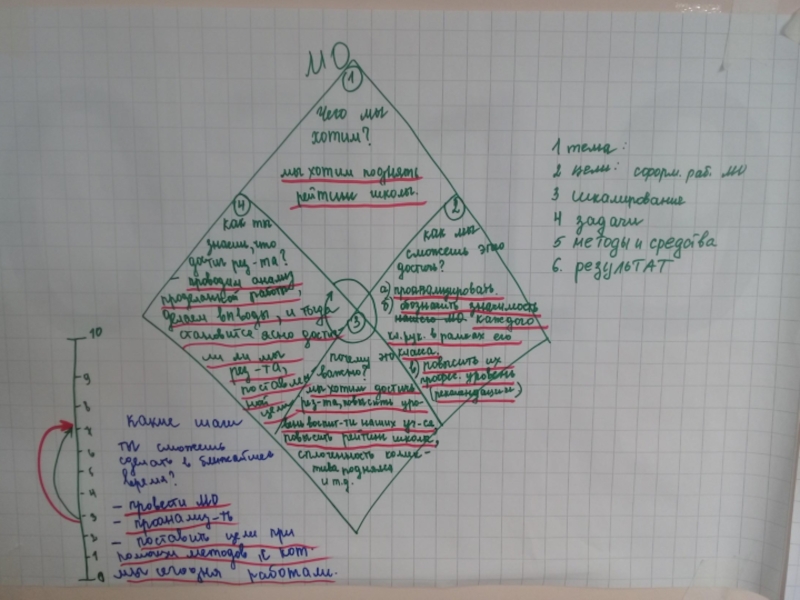 МО
1
Чего мы
хотим?
мы хотим поднять
рейтинг школы.
4
как ты
знаешь, что
достиг рез-та?
- проводам анализ
проделанной работы,
делаем выводы, и тогда
становится ясно достиг
ли ли мы
рез-та,
поставлен
ной
цели
2
как мы
сможешь этого
достичь?
а) проанализировать.
б) обозначить значимость
нашего МО каждого
кл. рук. в рамках его
класса.
в) повысить их
професс. уровень
(рекомендации)
3
почему это
важно?
мы хотим достичь
рез-та, повысить уро-
вень воспит-ти наших уч-ся,
повысить рейтинг школы,
сплоченность коллек-
тива поднялся
и т.д.
1 тема:
2 цели: сформ. раб. МО
3 шкалирование
4 задачи
5 методы и средства
6. результат
10
9
8
7
6
5
4
3
2
1
0
какие шаги
ты сможешь
сделать в ближайшее
время?
- провести МО
- проанализ-ть
- поставить цели при
помощи методов, с кот
мы сегодня работали.